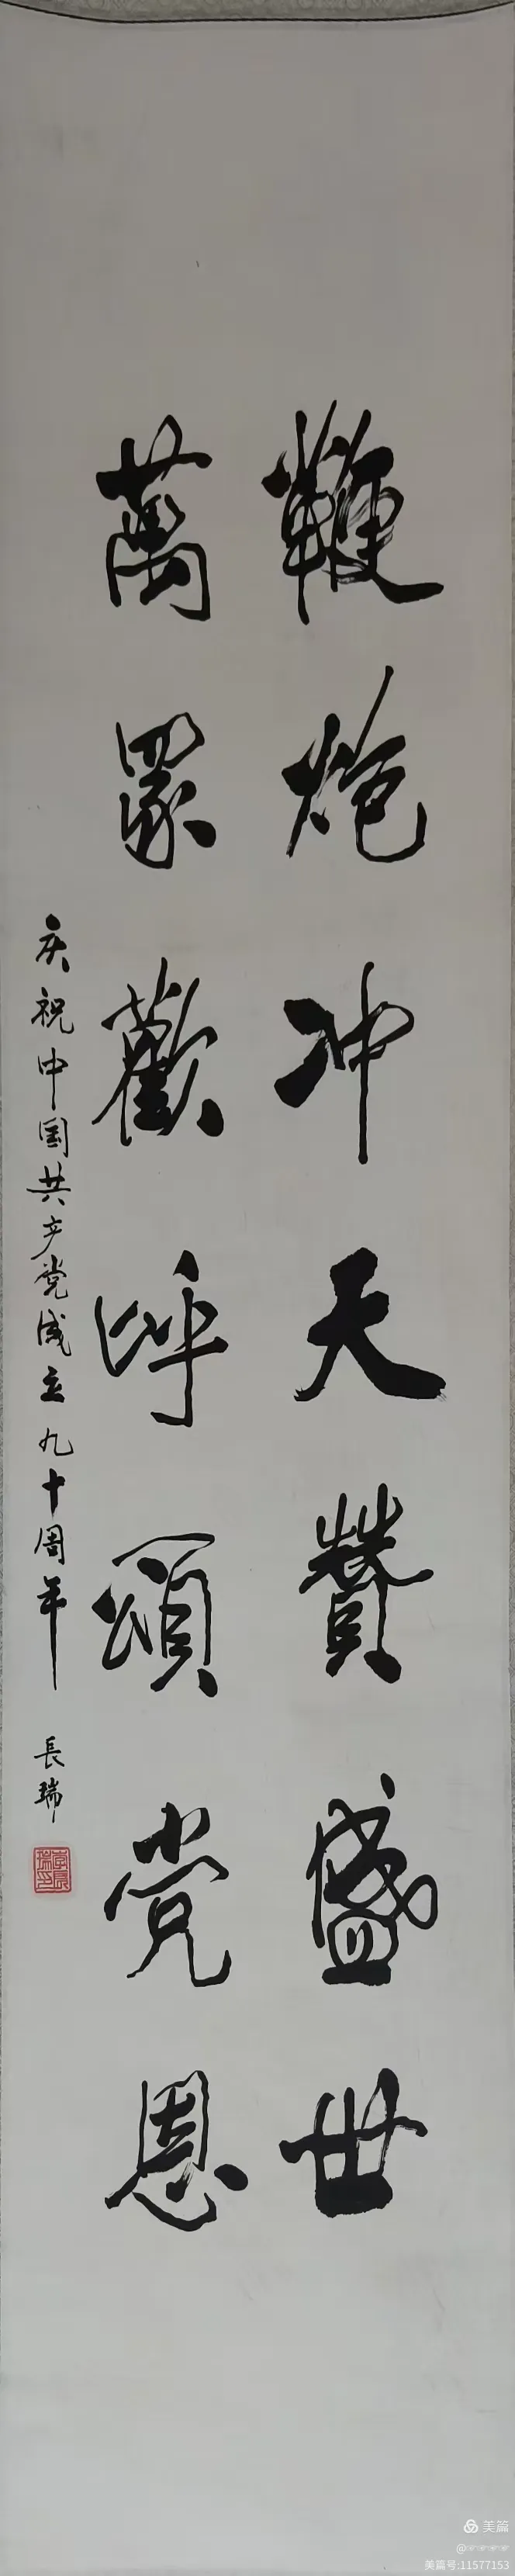 鞭炮冲天赞盛世
萬眾歡呼頌党恩
庆祝中国共产党成立九十周年
長瑞
李長瑞印
美篇
美篇号:11577153